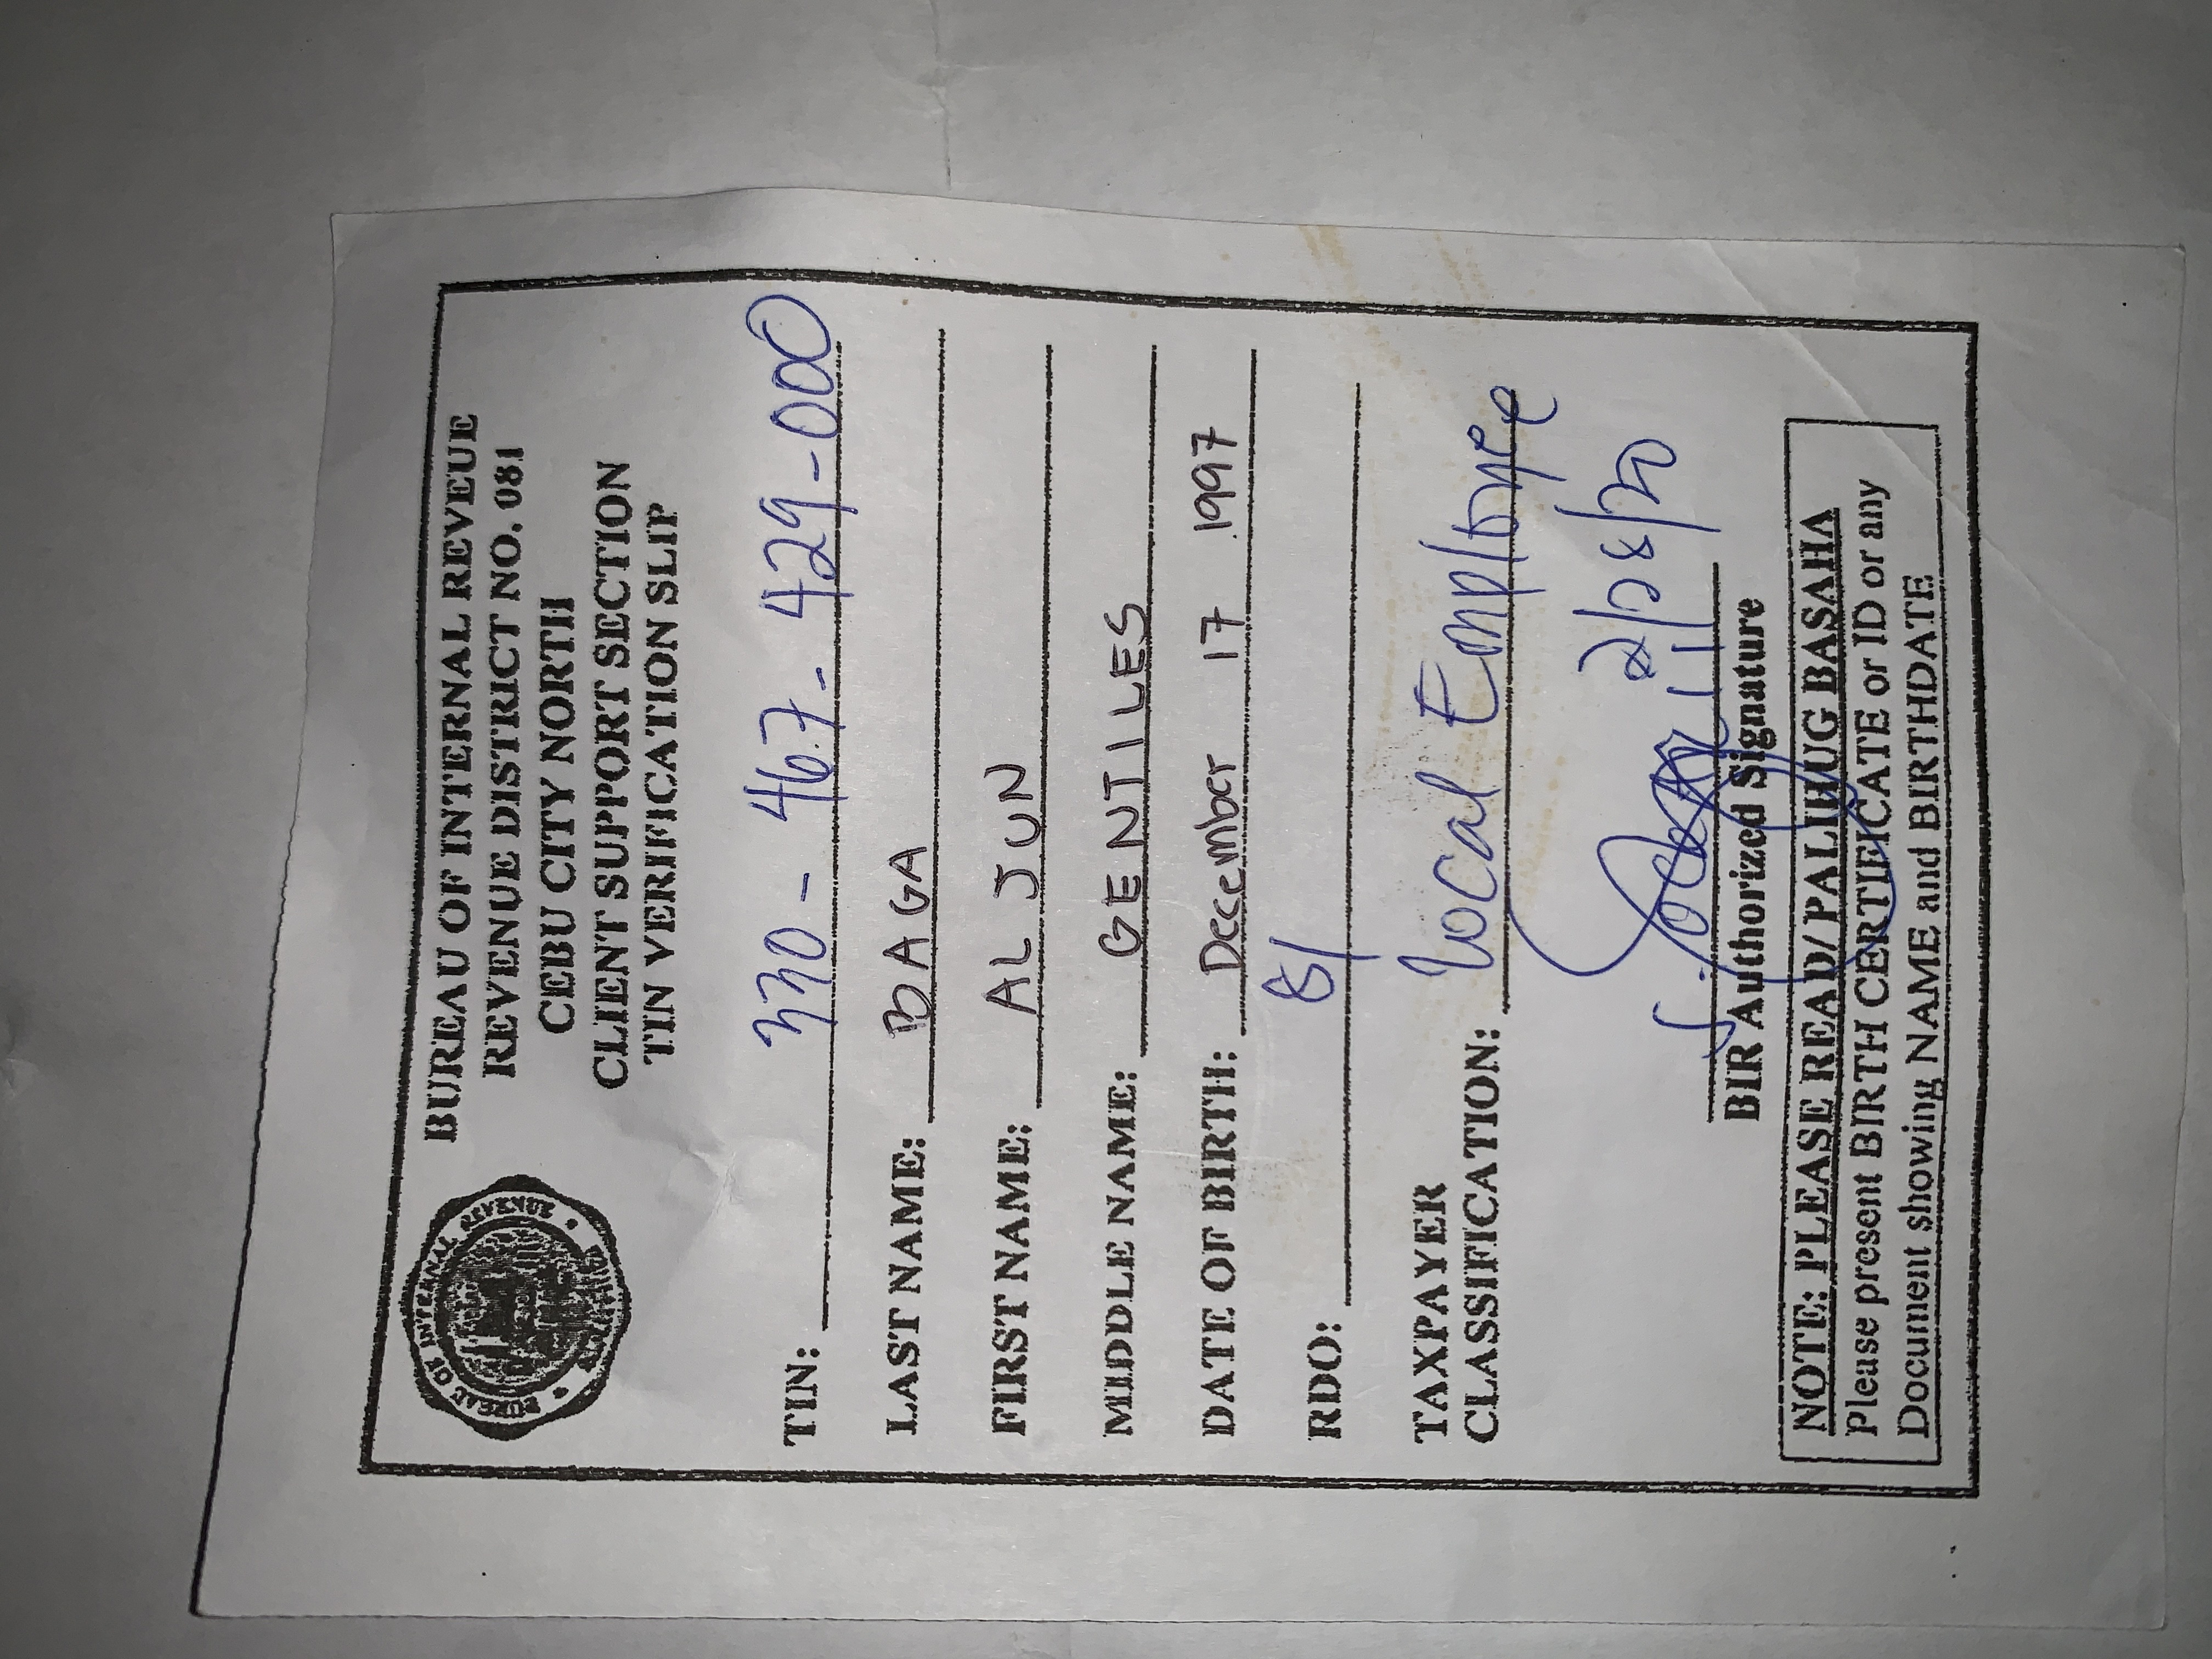 BUREAU OF INTERNAL REVEUE
REVENUE DISTRICT NO. 081
CEBU CITY NORTH
CLIENT SUPPORT SECTION
TIN VERIFICATION SLIP
BUREAU OF INTERNAL REVENUE
TIN: 330-467-429-000
LAST NAME: BAGA
FIRST NAME: ALJUN
MIDDLE NAME: GENTILES
DATE OF BIRTH: December 17 1997
RDO: 81
TAXPAYER
CLASSIFICATION: Local Employee
2/28/20
BIR Authorized Signature
NOTE: PLEASE READ/PALIHUG BASAHA
Please present BIRTH CERTIFICATE or ID or any
Document showing NAME and BIRTHDATE